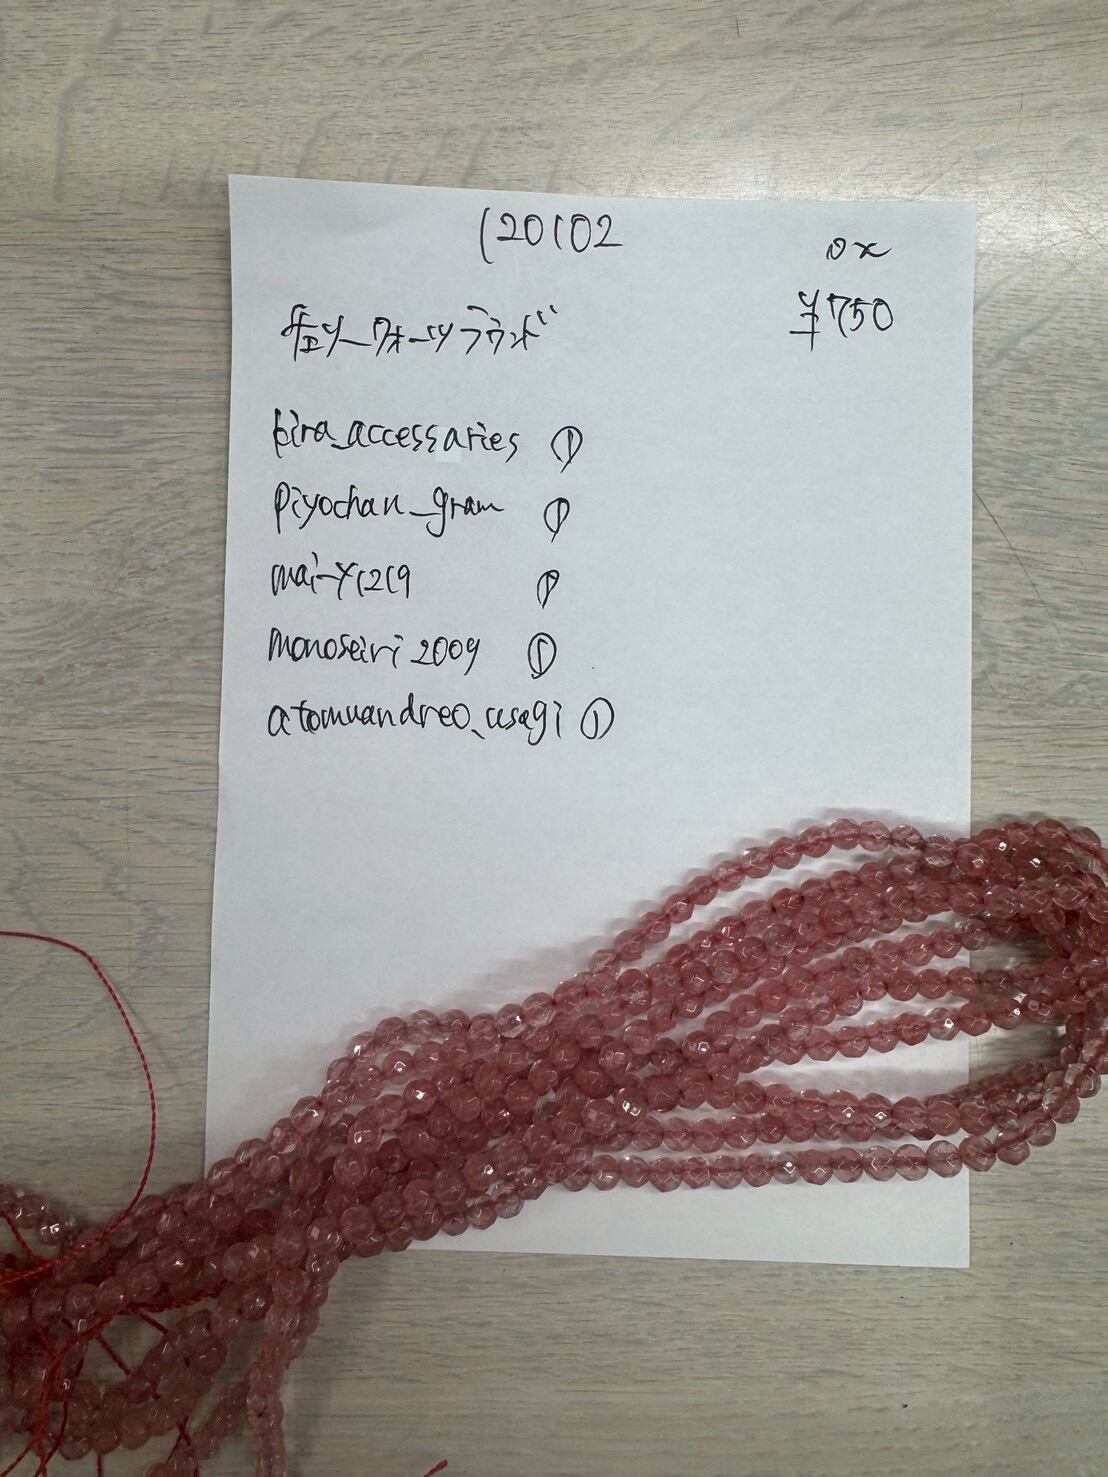 120102
ox
¥750
チェリークォーツラウンド
kira_accessaries ①
piyochan_gram ①
mai-y1219 ①
monoseiri2009 ①
atomuandreo_usagi ①